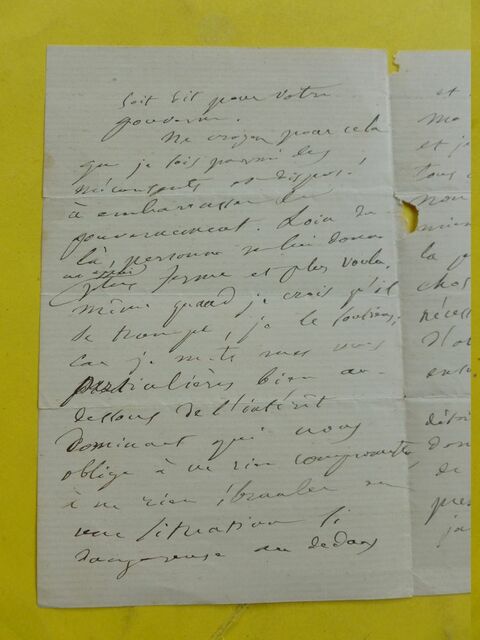 soit dit pour votre
gouverne.
Ne croyez pour cela
que je sois parmi les
mécontents et disposé
à embarrasser le
gouvernement. Loin de
là, personne ne lui donne
un appui
plus ferme et plus voulu,
même quand je crois qu'il
se trompe, je le soutiens,
car je mets mes vues
particulières bien au
dessous de l'intérêt
dominant qui nous
oblige à ne rien compromettre
à ne rien ébranler
une situation si
dangereuse au dedans
et
Mo
et j
tous
non
mien
la p
chos
nécess
d'o
ens
détr
don
de
pre
ja